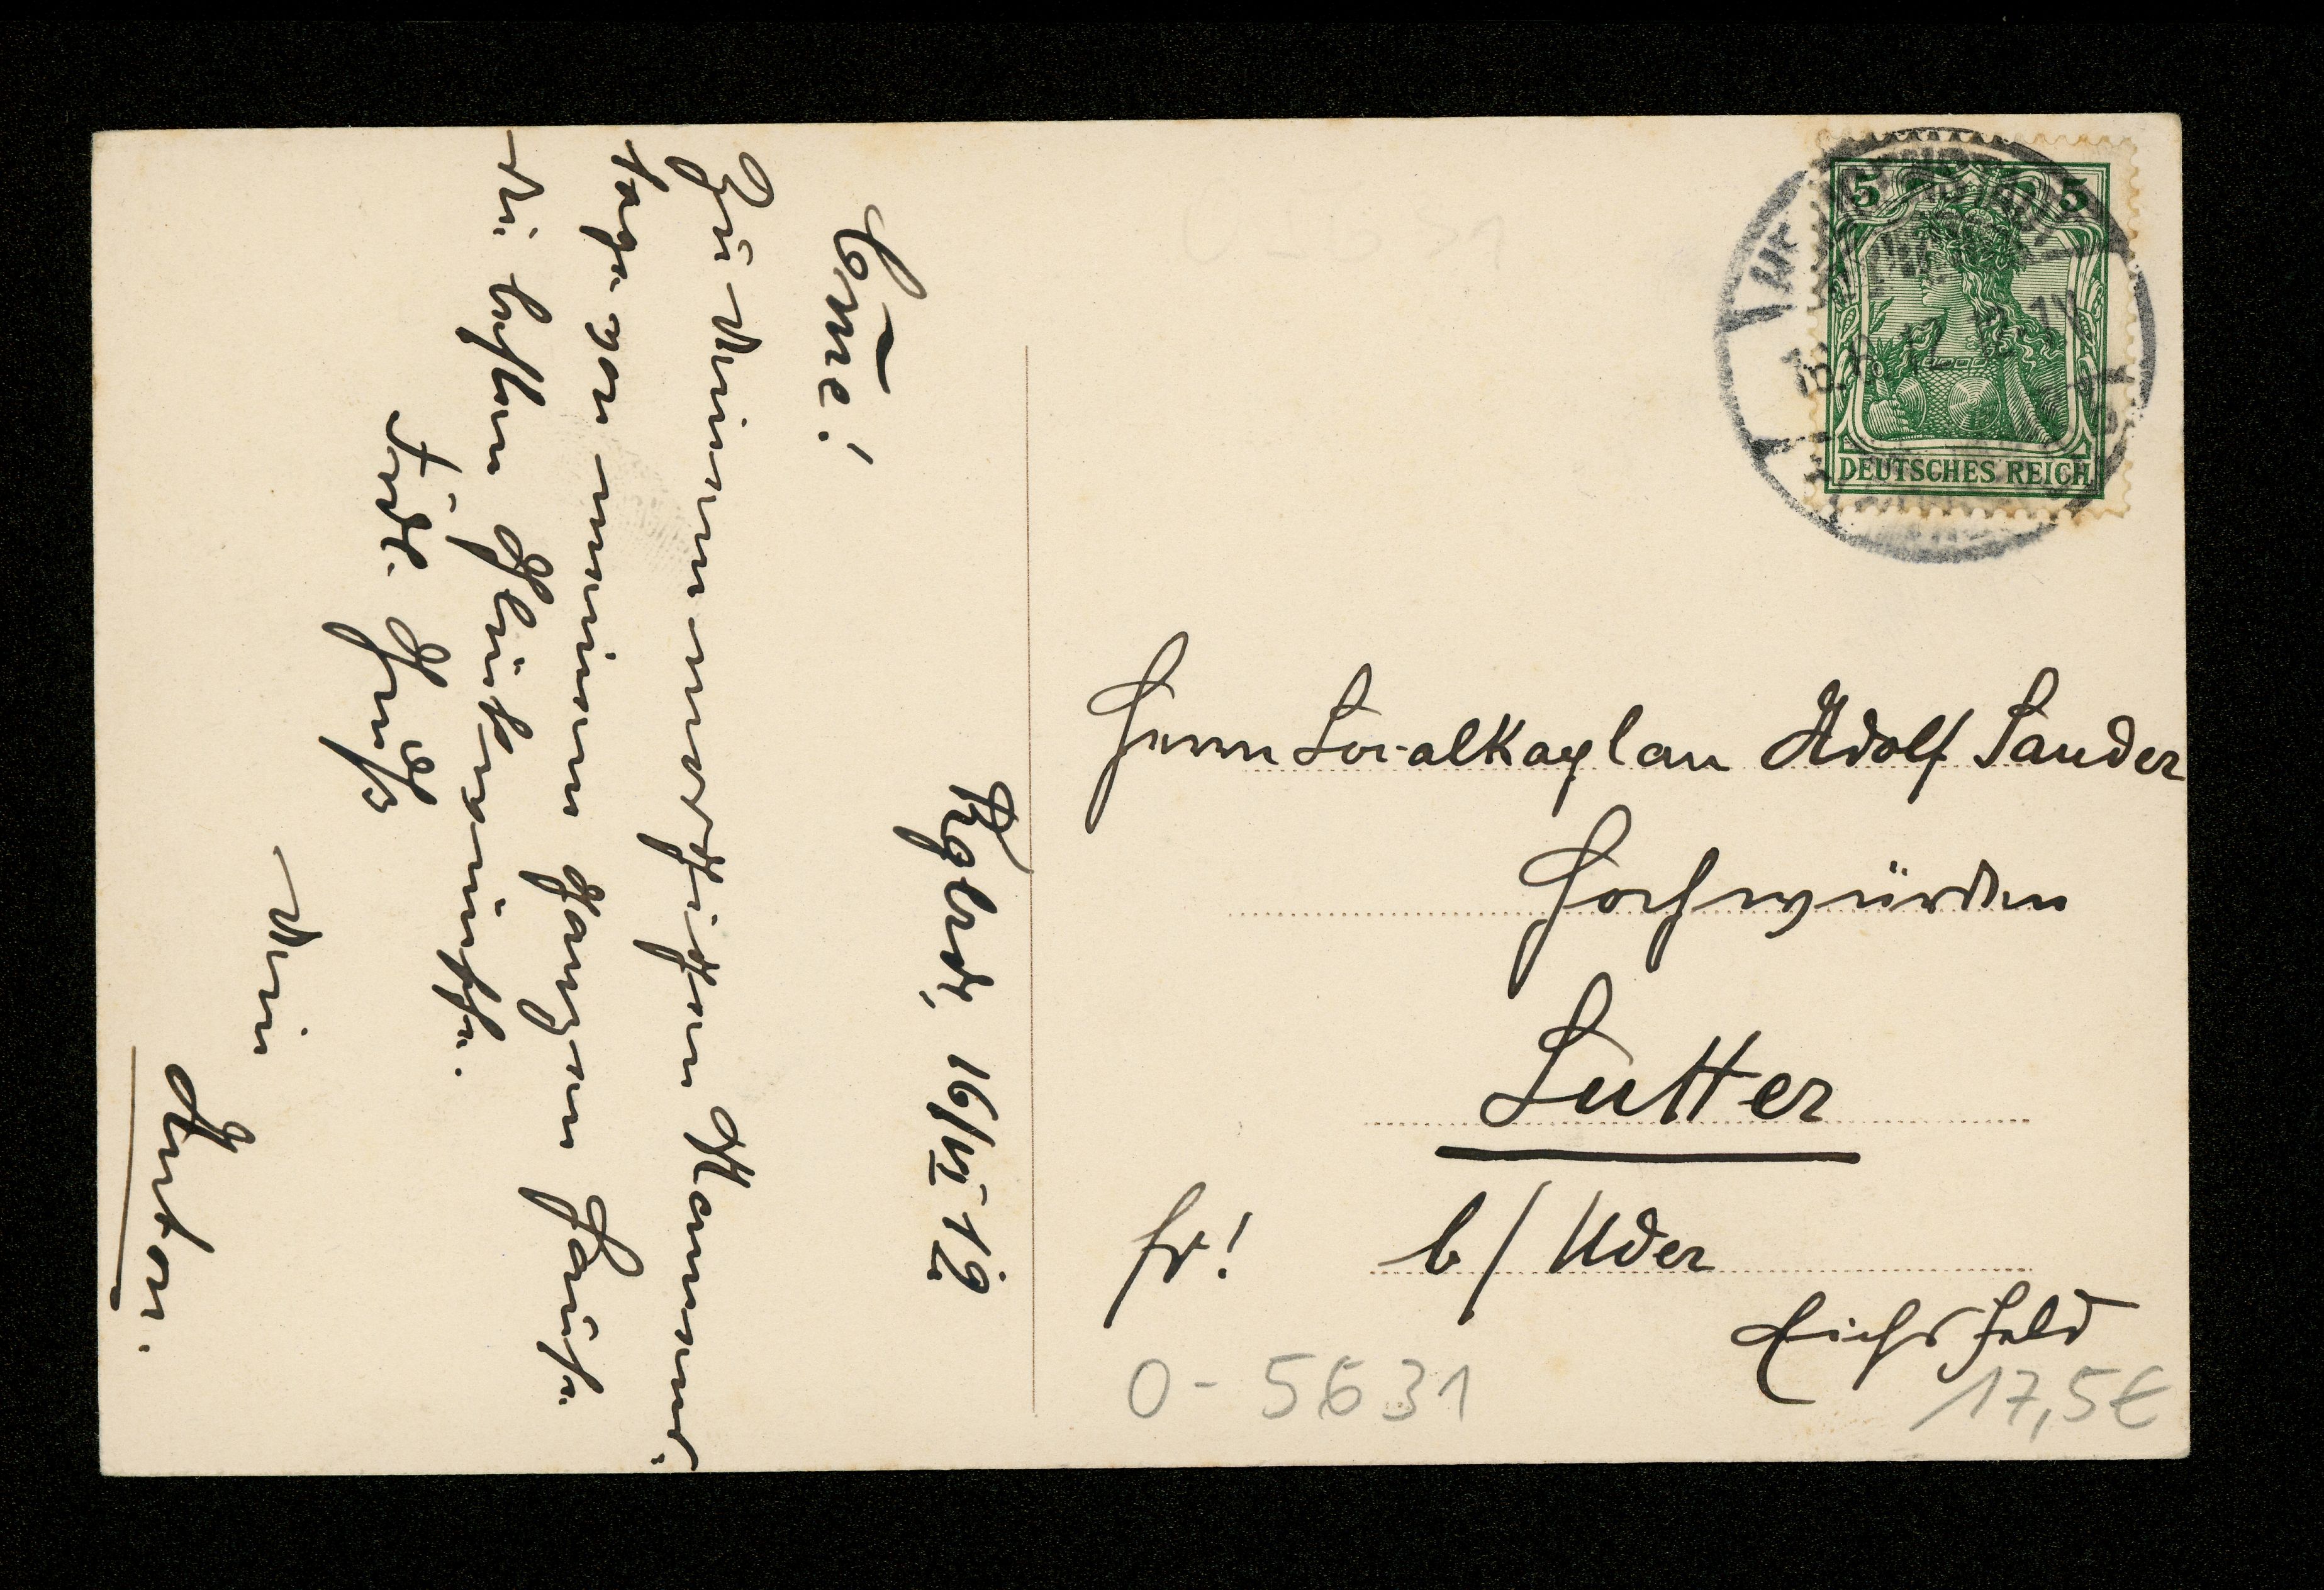 Kgl.rde, 16/VI 12
Cme!
Zu Deinem morgigen Namens-
tage von meinem ganzen Herzen
die besten Glückwünsche.
Frdl. Gruß
Dein
Anton.
5 5
DEUTSCHES REICH
Herrn Localkaplan Adolf Sander
Hochwürden
Lutter
fr! b/ Uder
Eichsfeld
0-5631
17,5€